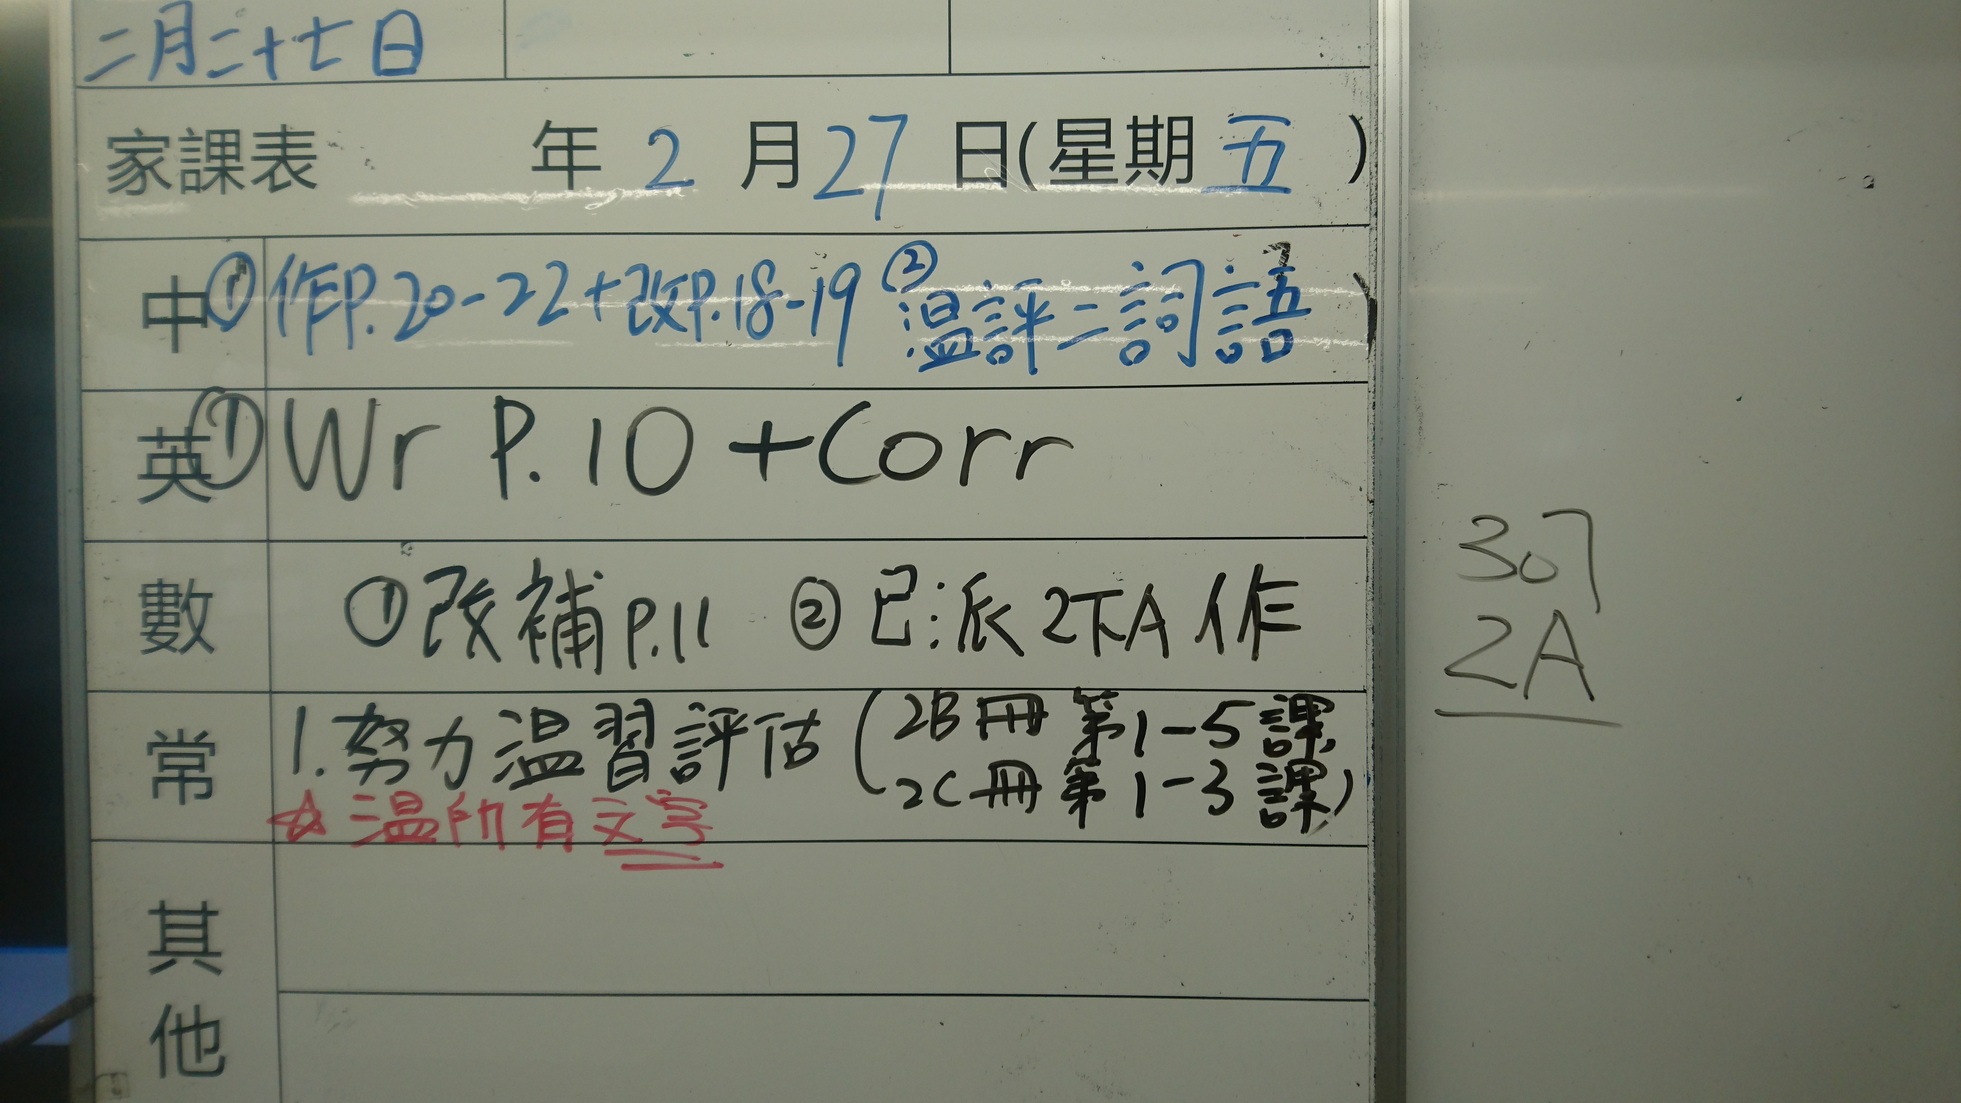 二月二十七日
家課表 年 2 月 27 日(星期 五 )
中 ① 作P.20-22+改P.18-19 ② 温評二詞語
英 ① Wr P.10 +Corr
數 ①改補P.11 ②已派2下A作
常 1.努力温習評估(2B冊 第1-5課,
2C冊 第1-3課)
☆温所有文字
其他
307
2A